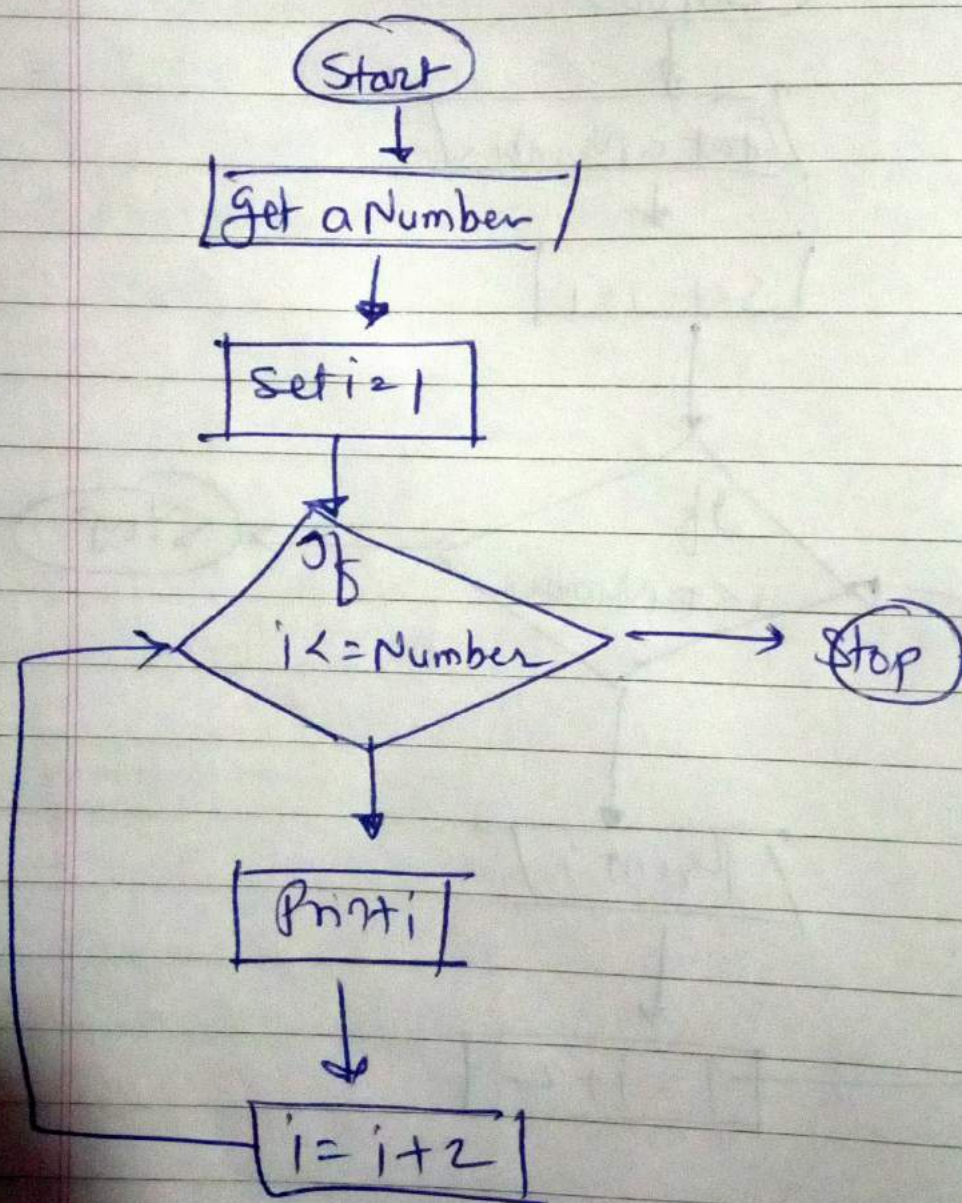 Start
Get a Number
Set i = 1
If
i <= Number
Stop
Print i
i = i + 2